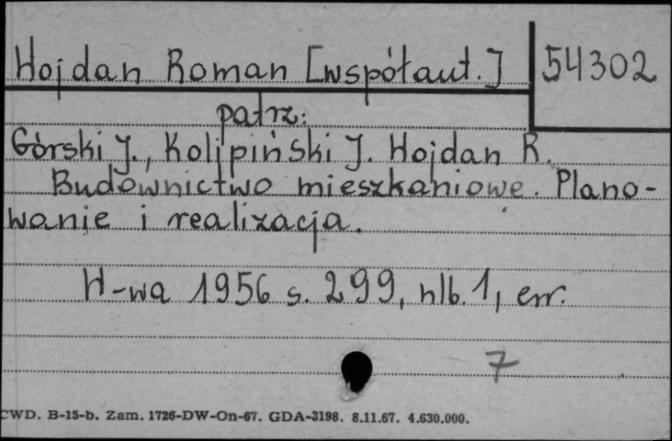 Hojdan Roman [współaut.] 54302
patrz:
Górski J., Kolipiński J. Hojdan R.
Budownictwo mieszkaniowe. Plano-
wanie i realizacja.
W-wa 1956 s. 299, nlb. 1, err.
7
CWD. B-15-b. Zam. 1726-DW-On-67. GDA-3198. 8.11.67. 4.630.000.